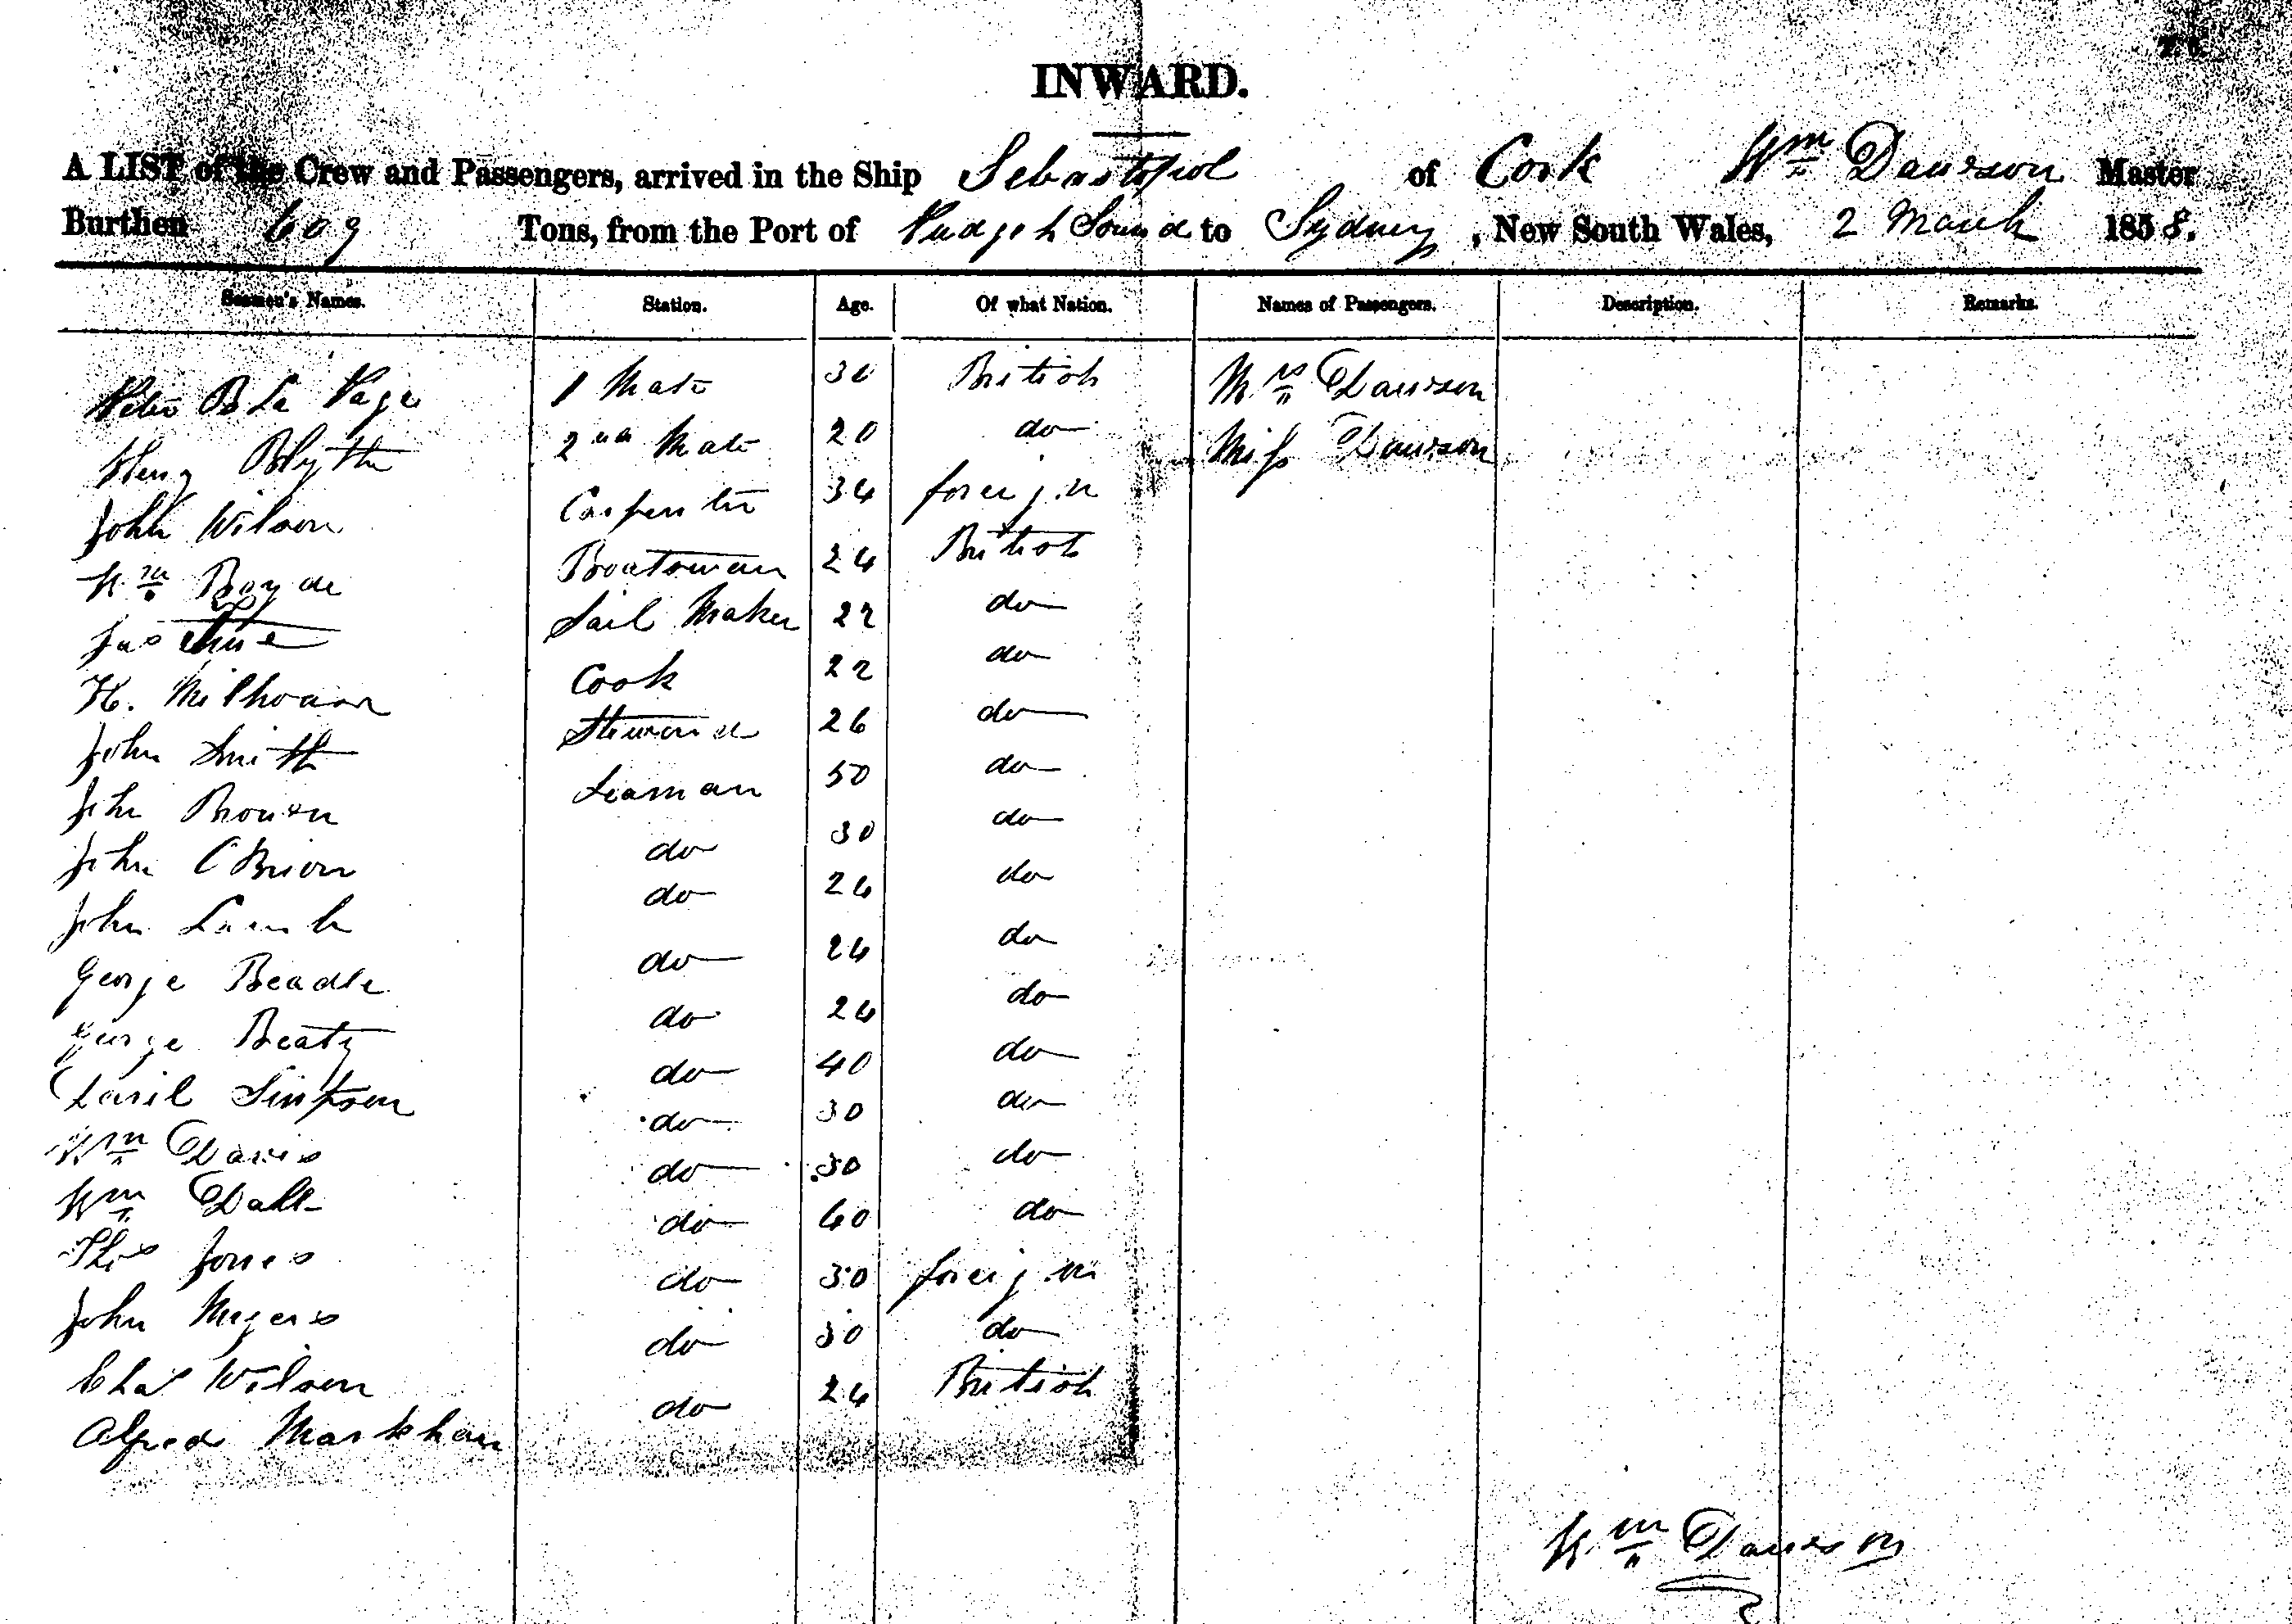 INWARD.
A LIST of the Crew and Passengers, arrived in the Ship Sebastopol of Cork Wm Dawson Master
Burthen 609 Tons, from the Port of Pudget Sound to Sydney, New South Wales, 2 March 1858.
Seamen's Names. Station. Age. Of what Nation. Names of Passengers. Description. Remarks.
Peter B Le Page 1 Mate 30 British Mrs Dawson
Henry Blyth 2nd Mate 20 do Miss Dawson
John Wilson Carpenter 34 foreign
Wm Boyde Boatswain 24 British
Jas Sail Maker 22 do
H. Cook 22 do
John Smith Steward 26 do
John Brown Seaman 50 do
John OBrien do 30 do
John Lamb do 24 do
George Beadle do 24 do
George Beaty do 24 do
David Simpson do 40 do
Wm Davis do 30 do
Wm Dall do 30 do
Thos Jones do 40 do
John Meyers do 30 foreign
Chas Wilson do 30 do
Alfred Markham do 24 British
Wm Dawson